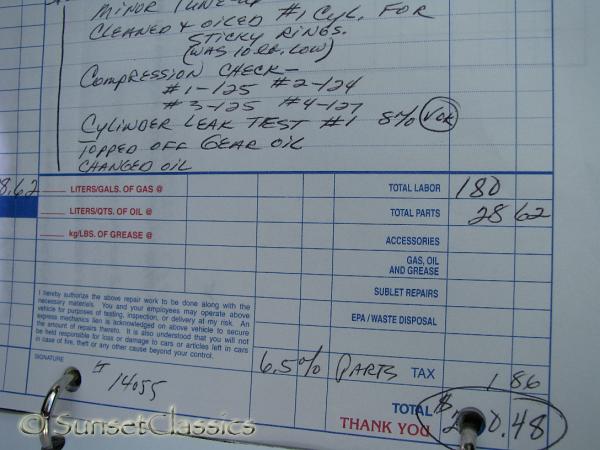 MINOR TUNE-UP
CLEANED & OILED #1 CYL. FOR
STICKY RINGS.
(WAS 10 LB. LOW)
COMPRESSION CHECK—
#1-125 #2-124
#3-125 #4-127
CYLINDER LEAK TEST #1 8% V OK
TOPPED OFF GEAR OIL
CHANGED OIL
8.62 LITERS/GALS. OF GAS @ TOTAL LABOR 180
LITERS/QTS. OF OIL @ TOTAL PARTS 28 62
kg/LBS. OF GREASE @ ACCESSORIES
GAS, OIL
AND GREASE
SUBLET REPAIRS
EPA / WASTE DISPOSAL
I hereby authorize the above repair work to be done along with the
necessary materials. You and your employees may operate above
vehicle for purposes of testing, inspection, or delivery at my risk. An
express mechanics lien is acknowledged on above vehicle to secure
the amount of repairs thereto. It is also understood that you will not
be held responsible for loss or damage to cars or articles left in cars
in case of fire, theft or any other cause beyond your control.
6.5% PARTS TAX 1 86
SIGNATURE
14055
TOTAL $ 2 0.48
THANK YOU
© SunsetClassics